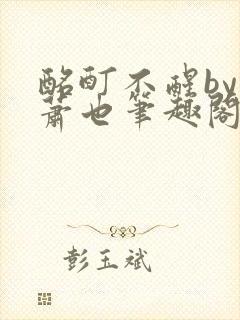 酩酊不醒by
萧也笔趣阁
彭玉斌